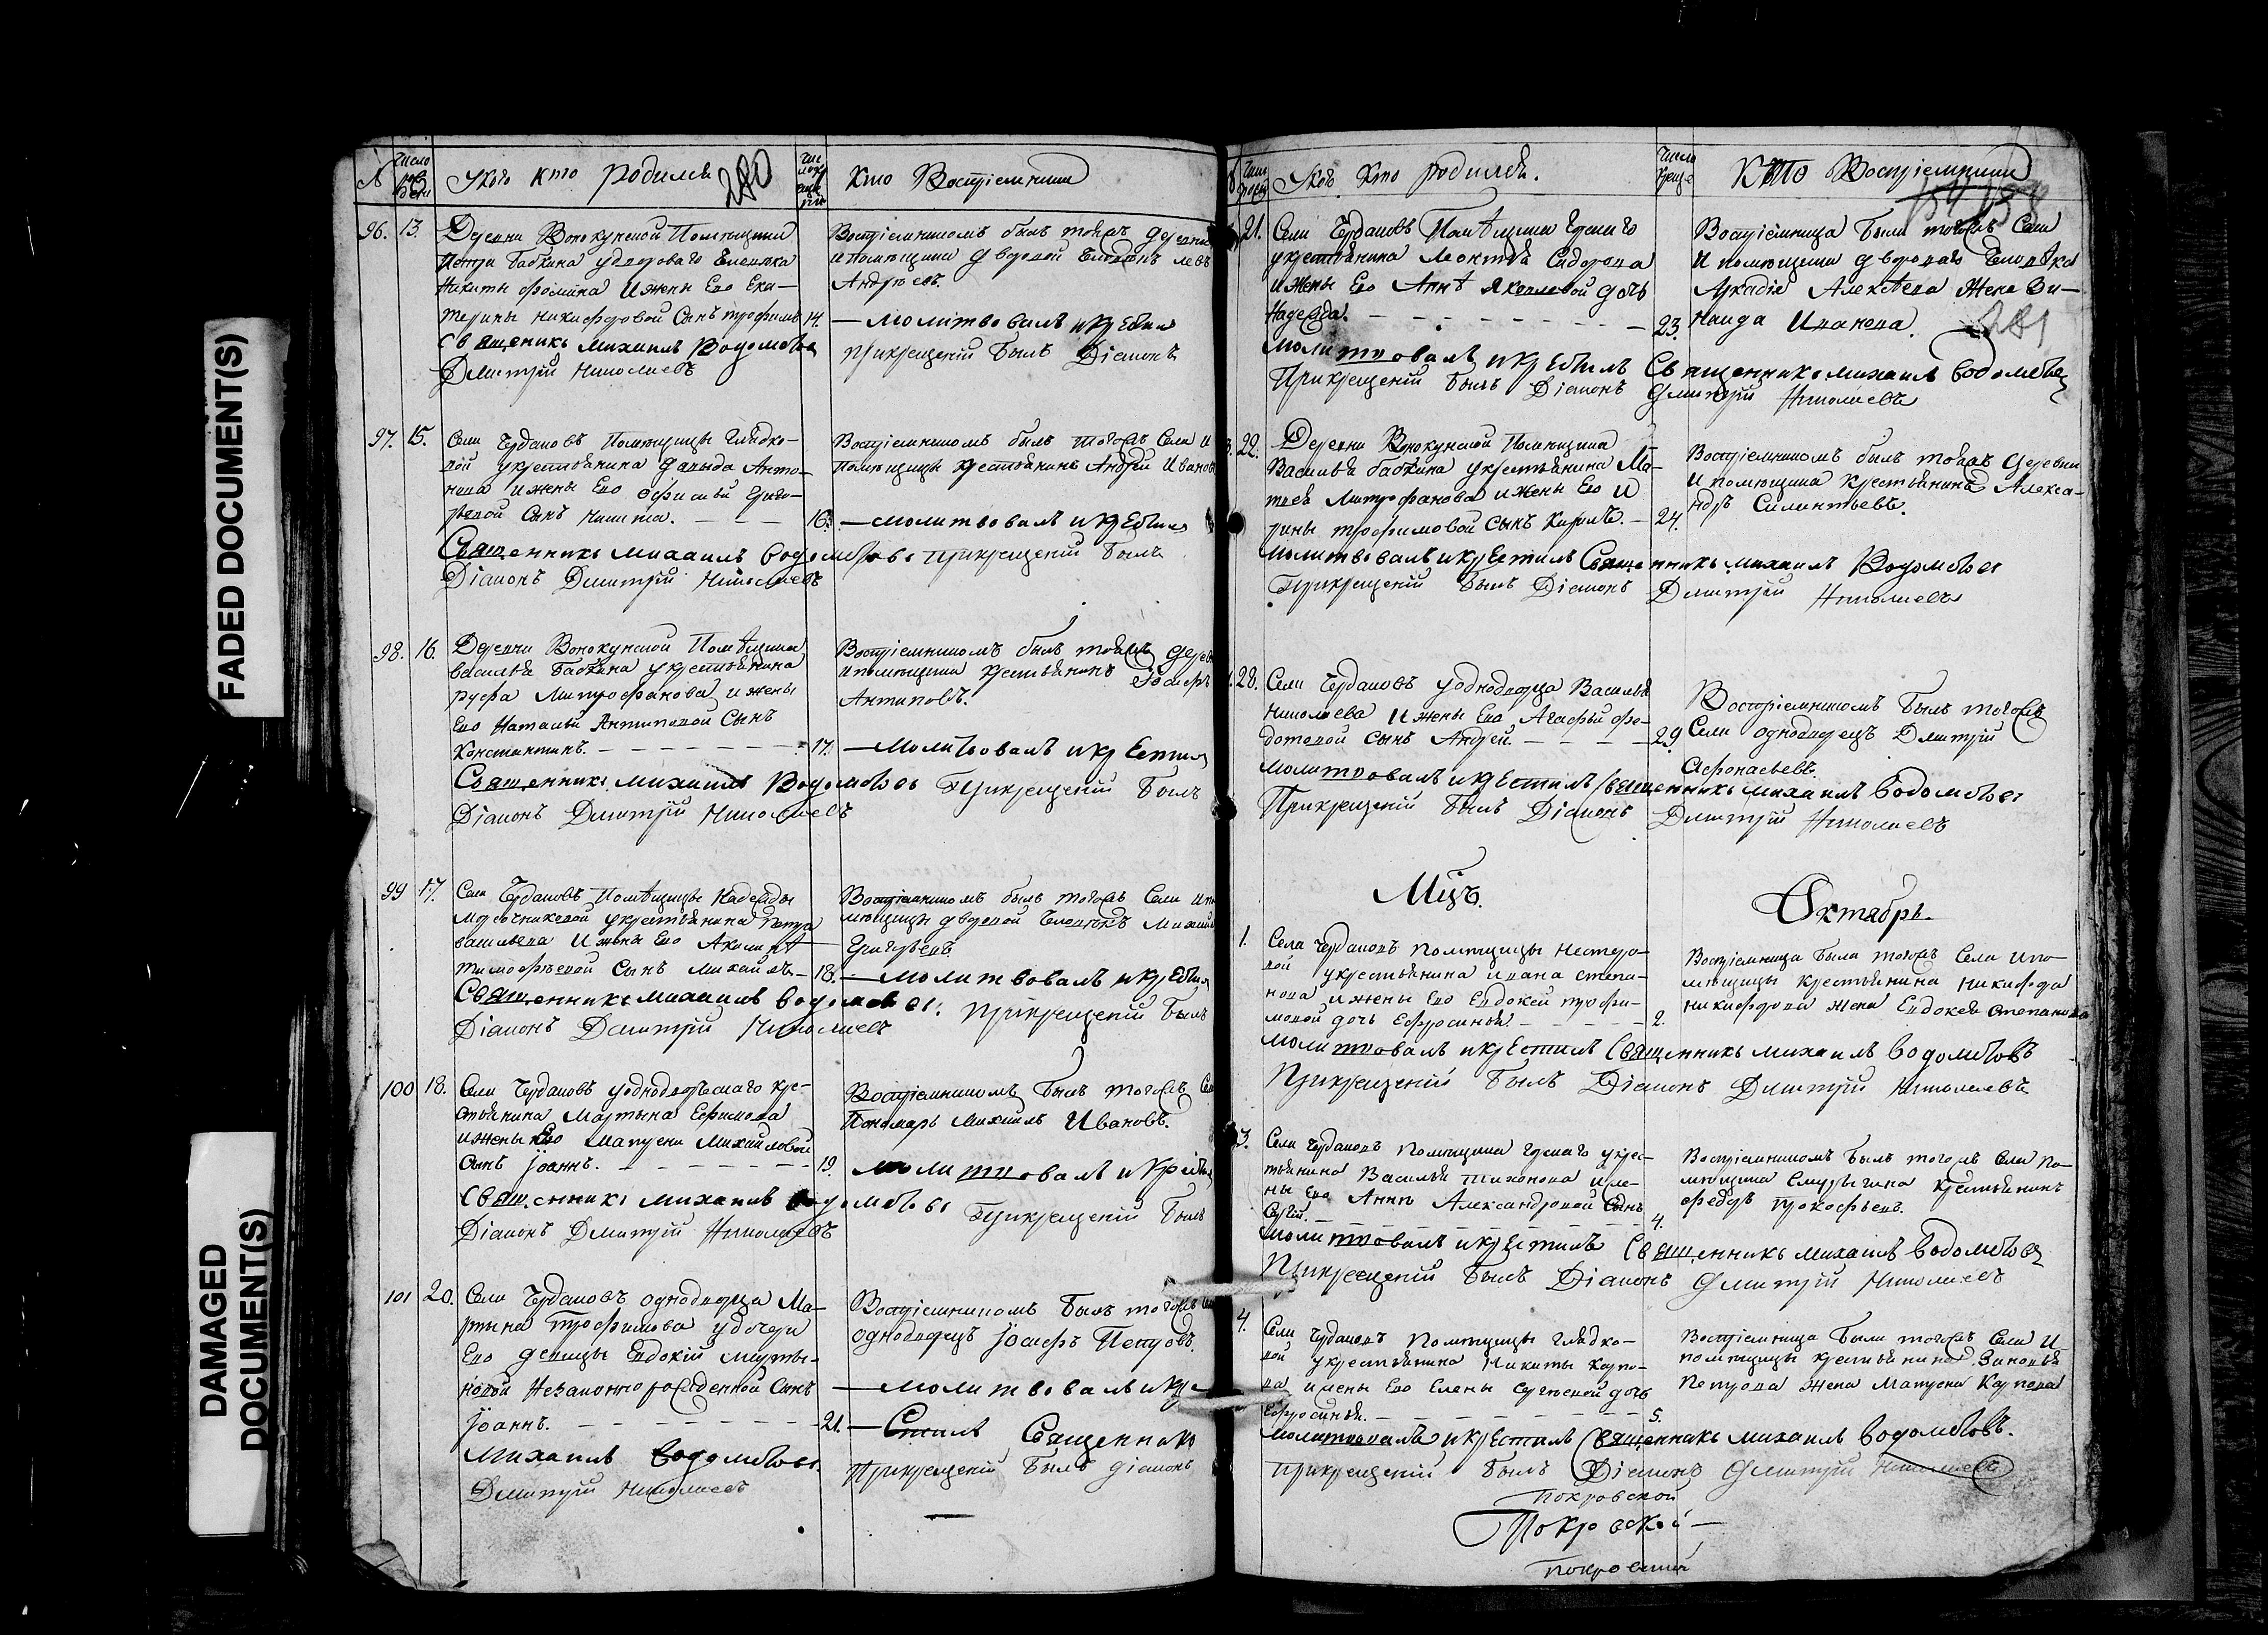 FADED DOCUMENT(S)
DAMAGED
DOCUMENT(S)
№
число
У кого кто родился
280
Кто Восприемники
96. 13.
Деревни Помещика
Петра Бабкина у дворового человека
Никиты Фомина и жены Его Ека-
терины Никифоровой Сынъ Трофимъ 14.
Священникъ Михаилъ Водолеѣ
Дмитрій Николаевъ
Воспріемникомъ былъ тойжъ деревни
и помещика дворовой человекъ левъ
Андреевъ.
— Молитвовалъ и крестилъ
При крещеніи былъ Діаконъ
97. 15.
Села Чердаковъ Помещицы Глядко-
вой у крестьянина Давыда Анто-
нова и жены Его Григо-
рьевой Сынъ Никита. 16.
Священникъ Михаилъ При крещеніи былъ
Діаконъ Дмитрій Николаевъ
Воспріемникомъ былъ тогожъ Села и
помещицы крестьянинъ Андрей Ивановъ
— Молитвовалъ и крестилъ
98. 16.
Деревни Помѣщика
Василья Бабкина у крестьянина
руфа Митрофанова и жены
Его Натальи Антиповой Сынъ
Константинъ. 17.
Священникъ Михаилъ При крещеніи былъ
Діаконъ Дмитрій Николаевъ
Воспріемникомъ былъ тойжъ дерев
и помещика крестьянинъ Іосифъ
Антиповъ.
— Молитвовалъ и крестилъ
99 17.
Села Чердаковъ Помѣщицы Надежды
у крестьянина Петра
Васильева и жены Его
Тимофѣевой Сынъ Михаилъ— 18.
Священникъ Михаилъ При крещеніи былъ
Діаконъ Дмитрій Николаевъ
Воспріемникомъ былъ тогожъ Села и по
мещицы дворовой человекъ
Григорьевъ
— Молитвовалъ и крестилъ
100 18.
Села Чердаковъ у однодворческаго кре-
стьянина Мартына Ефимова
и жены Его Матрены Михайловой
Сынъ Іоаннъ. 19.
Священникъ Михаилъ При крещеніи былъ
Діаконъ Дмитрій Николаевъ
Воспріемникомъ былъ тогожъ Села
Пономарь Михаилъ Ивановъ.
Молитвовалъ и крестилъ
101 20.
Села Чердаковъ однодворца Ма-
ртына Трофимова у дочери
Его девицы Евдокіи Марты-
новой Незаконно рожденной Сынъ
Іоаннъ. 21.
Михаилъ
Дмитрій Николаевъ
Воспріемникомъ былъ тогожъ Села
однодворецъ Іосифъ Петровъ.
— Молитвовалъ и кре
— Стилъ Священникъ
При крещеніи былъ діаконъ
У кого Кто родился.
Кто Восприемники
21.
Села Чердаковъ Помѣщика
у крестьянина Леонтья Сидорова
и жены Его Анны Яковлевой дочь
Надежда. 23.
Молитвовалъ и крестилъ Священникъ Михаилъ
При крещеніи былъ Діаконъ Дмитрій Николаевъ
Воспріемница Была тогожъ Села
и помещика двороваго Человѣка
Аркадія Алексѣева Жена Зи-
наида Иванова.
281
22.
Деревни Помещика
Василья Бабкина у крестьянина Ма-
твея Митрофанова и жены Его И
рины Трофимовой Сынъ Кирилъ. 24.
Молитвовалъ и крестилъ Священникъ Михаилъ
При крещеніи былъ Діаконъ Дмитрій Николаевъ
Воспріемникомъ былъ тойжъ деревни
и помещика крестьянинъ Алекса-
ндръ Силантьевъ.
28.
Села Чердаковъ у однодворца Василья
Николаева и жены Его Агафьи Фе-
дотовой Сынъ Андрей. 29
Молитвовалъ и крестилъ Священникъ Михаилъ
При крещеніи былъ Діаконъ Дмитрій Николаевъ
Воспріемникомъ былъ тогожъ
Села однодворецъ Дмитрій
Афонасьевъ.
Мцъ.
Октябрь.
1.
Села Чердаковъ помещицы Нестеро-
вой у крестьянина Ивана Степа-
нова и жены Его Евдокеи Трофи-
мовой дочь Ефросинья. 2.
Молитвовалъ и крестилъ Священникъ Михаилъ
При крещеніи былъ Діаконъ Дмитрій Николаевъ
Воспріемница была тогожъ Села и по-
мещицы крестьянина Никифора
Никифорова жена Евдокея Степанова
3.
Села Чердаковъ помещика у крес-
тьянина Василья Тихонова и же-
ны Его Анны Александровой Сынъ
Сергій. 4.
Молитвовалъ и крестилъ Священникъ Михаилъ
При крещеніи былъ Діаконъ Дмитрій Николаевъ
Воспріемникомъ былъ тогожъ Села По-
мещика крестьянинъ
Федоръ Прокофьевъ.
4.
Села Чердаковъ помещицы Глядко-
вой у крестьянина Никиты Карпо-
ва и жены Его Елены Сергѣевой дочь
Ефросинья. 5.
Молитвовалъ и крестилъ Священникъ Михаилъ
При крещеніи былъ Діаконъ Дмитрій Николаевъ
Воспріемница была тогожъ Села и
помещицы крестьянина Зиновья
Петрова Жена Матрена Карпова
Покровской
Покровской —
Покровской